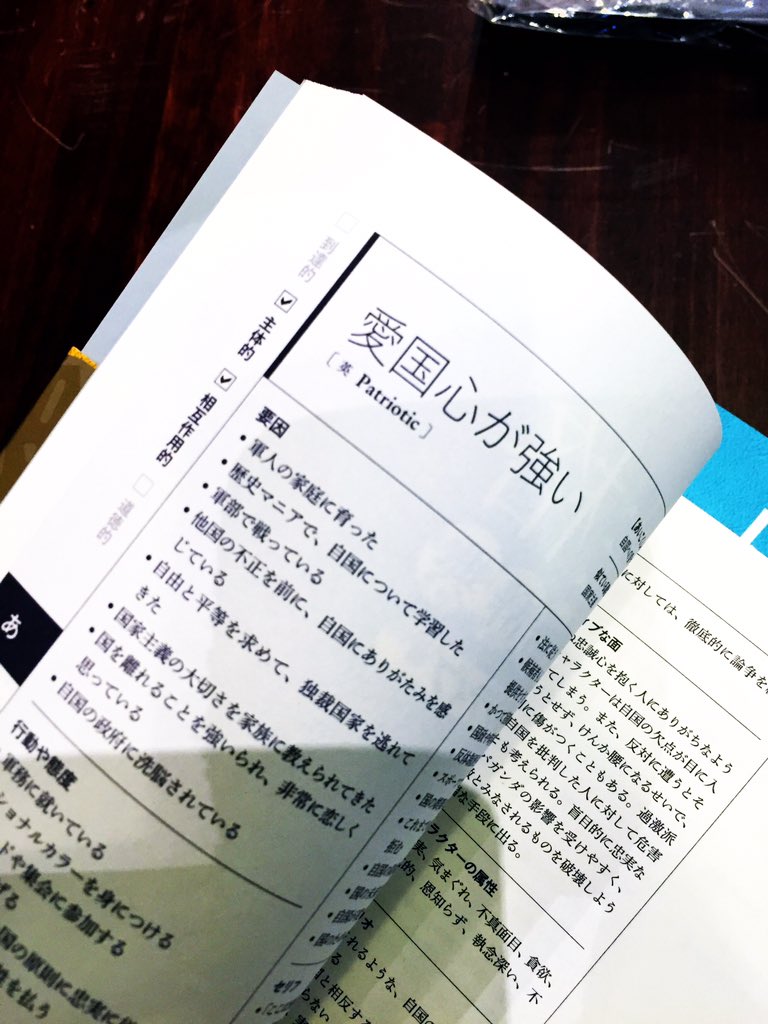 到達的
主体的
相互作用的
道徳的
愛国心が強い
[英 Patriotic]
要因
・軍人の家庭に育った
・歴史マニアで、自国について学習した
・軍部で戦っている
・他国の不正を前に、自国にありがたみを感
じている
・自由と平等を求めて、独裁国家を逃れて
きた
・国家主義の大切さを家族に教えられてきた
・国を離れることを強いられ、非常に恋しく
思っている
・自国の政府に洗脳されている
あ
行動や態度
軍務に就いている
ショナルカラーを身につける
ドや集会に参加する
げる
国の原則に忠実に
を払う
セリフ
に対しては、徹底的に論争を
ブな面
忠誠心を抱く人にありがちなよう
ャラクターは自国の欠点が目に入
てしまう。また、反対に遭うとそ
うとせず、けんか腰になるせいで、
に傷がつくこともある。過激派
自国を批判した人に対して危害
も考えられる。盲目的に忠実な
パガンダの影響を受けやすく、
とみなされるものを破壊しよう
な手段に出る。
ラクターの属性
実、気まぐれ、不真面目、貪欲、
的、恩知らず、執念深い、不
オ
れるような、自国の
る
と相反する
らない